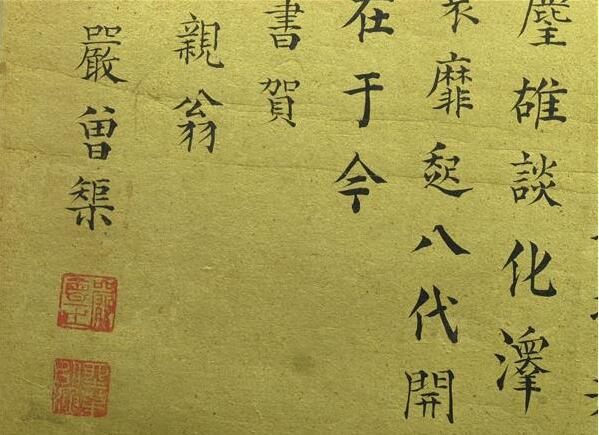 麈雄談化澤
靡起八代開
在于今
書賀
親翁
嚴曾榘